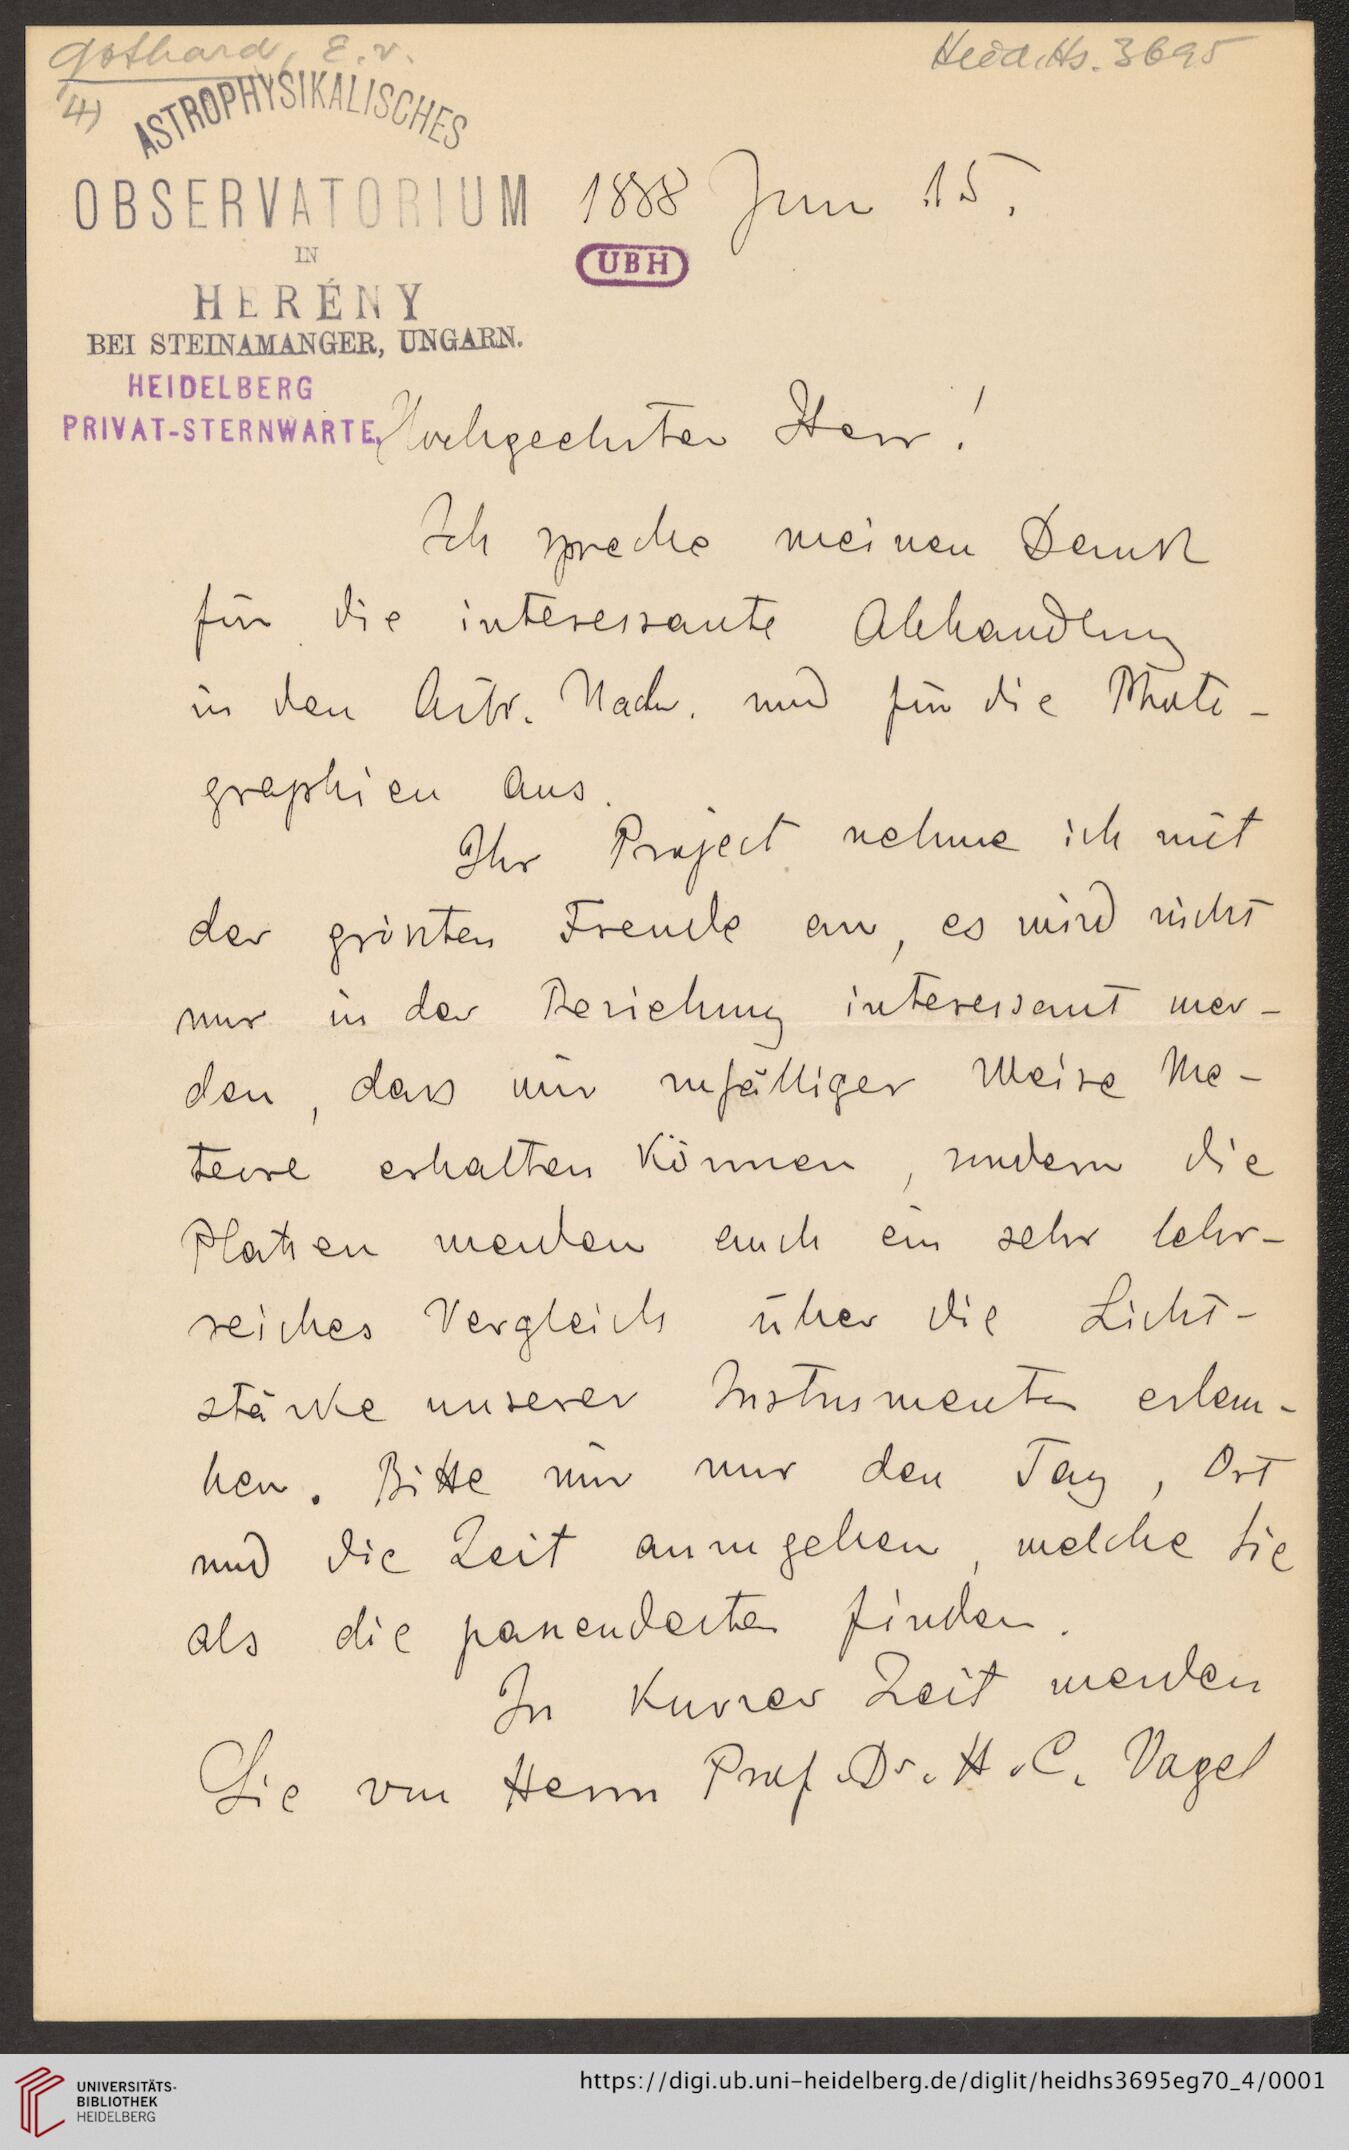 Gothard, E. v.
Heid. Hs. 3695
4)
ASTROPHYSIKALISCHES
OBSERVATORIUM
IN
HERÉNY
BEI STEINAMANGER, UNGARN.
1888 Jun 15.
UBH
HEIDELBERG
PRIVAT-STERNWARTE.
Hochgeehrter Herr!
Ich spreche meinen Dank
für die interessante Abhandlung
in den Astr. Nachr. und für die Photo-
graphien aus.
Ihr Project nehme ich mit
der grössten Freude an, es wird nicht
nur in der Beziehung interessant wer-
den, dass wir zufälliger Weise Me-
teore erhalten können, sondern die
Platten werden auch ein sehr lehr-
reiches Vergleich über die Licht-
stärke unserer Instrumente erlau-
ben. Bitte mir nur den Tag, Ort
und die Zeit anzugeben, welche Sie
als die passendsten finden.
In kurzer Zeit werden
Sie von Herrn Prof. Dr. H. C. Vogel
UNIVERSITÄTS-
BIBLIOTHEK
HEIDELBERG
https://digi.ub.uni-heidelberg.de/diglit/heidhs3695eg70_4/0001